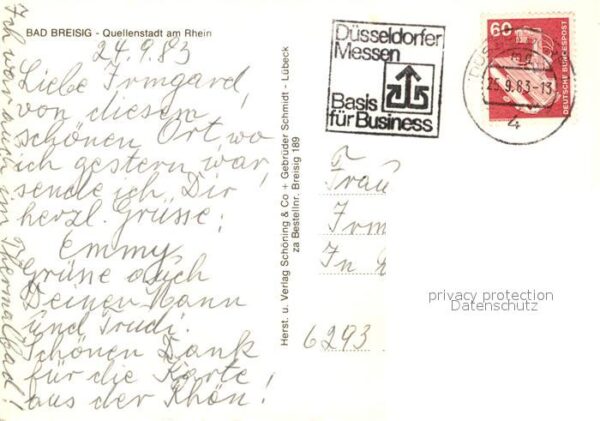 BAD BREISIG - Quellenstadt am Rhein
24.9.83
Liebe Irmgard,
von diesem
schönen Ort, wo
ich gestern war,
sende ich Dir
herzl. Grüsse!
Emmy
Grüsse auch
Deinen Mann
und Trudi.
Schönen Dank
für die Karte
aus der Rhön!
Ich war auch im Thermalbad!
Herst. u. Verlag Schöning & Co + Gebrüder Schmidt - Lübeck
za Bestellnr. Breisig 189
Düsseldorfer
Messen
Basis
für Business
60
DEUTSCHE BUNDESPOST
25.9.83-13
4
Frau
Irm
In
6293
privacy protection
Datenschutz